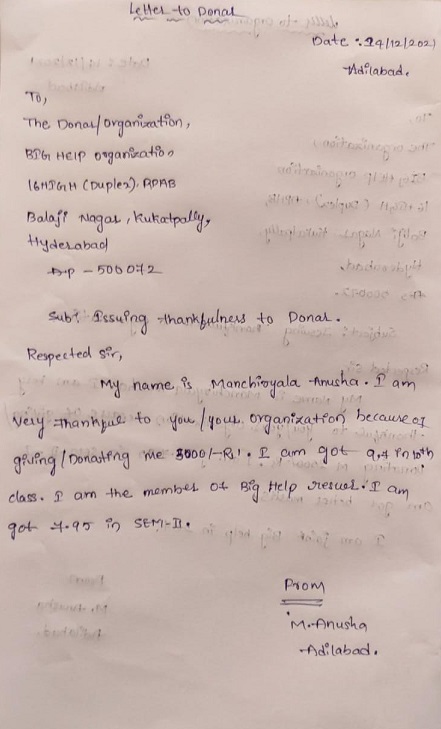 Letter to Donar
Date: 24/12/2021
Adilabad.
To,
The Donar/organization,
BIG HELP organization
16HIGH (Duplex). APHB
Balaji Nagar, Kukatpally,
Hyderabad
AP - 500072
Sub: Issuing thankfulness to Donar.
Respected Sir,
My name is Manchiryala Anusha. I am
very thankful to you/your organization because of
giving/Donating me 5000/-Rs. I am got 9.7 in 10th
class. I am the member of Big Help rescues. I am
got 7.95 in SEM-II.
From
M. Anusha
Adilabad.